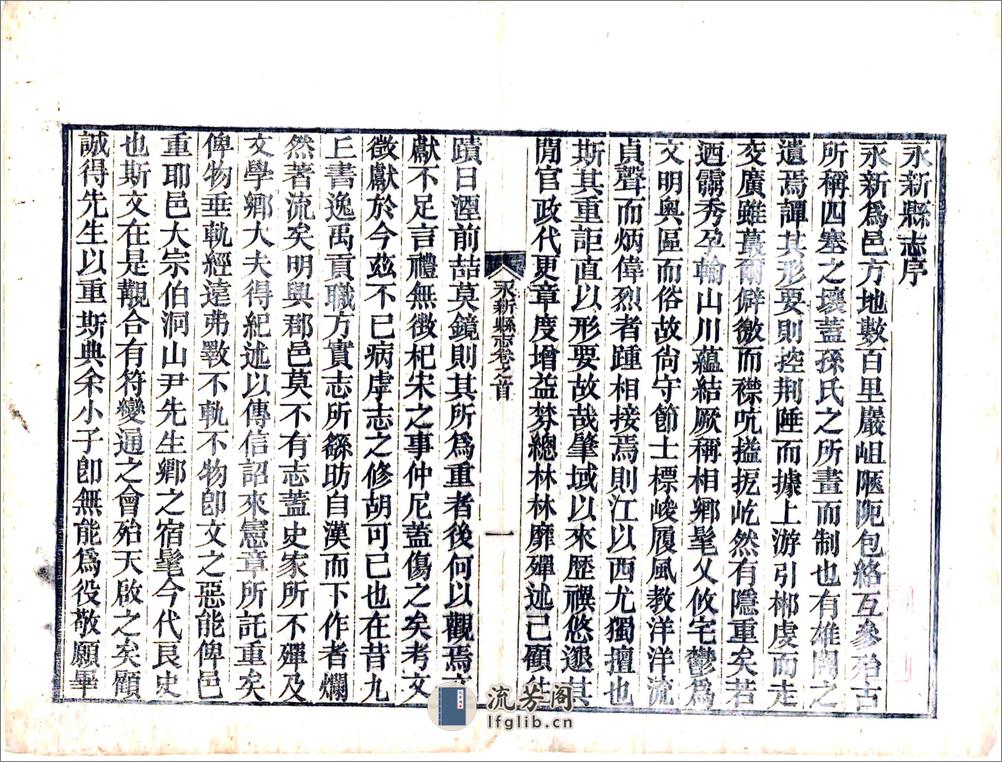 永新縣志序
永新爲邑方地數百里巖岨陿阸包絡互參殆古
所稱四塞之壤蓋孫氏之所畫而制也有雄閫之
遺焉譚其形要則控荆陲而據上游引郴虔而走
交廣雖蕞爾僻徼而襟吭搤扼屹然有隱重矣若
迺霱秀孕輸山川蘊結厥稱相鄉髦乂攸宅鬱爲
文明奥區而俗故尙守節士標峻履風教洋洋流
貞聲而炳偉烈者踵相接焉則江以西尤獨擅也
斯其重詎直以形要故哉肇域以來歷禩悠邈其
閒官政代更章度增益棼總林林靡殫述已顧往
永新縣志卷之首
一
蹟日湮前喆莫鏡則其所爲重者後何以觀焉文
獻不足言禮無徵杞宋之事仲尼蓋傷之矣考文
徵獻於今玆不已病虖志之修胡可已也在昔九
丘書逸禹貢職方實志所繇昉自漢而下作者爛
然著流矣明興郡邑莫不有志蓋史家所不殫及
文學鄉大夫得紀述以傳信詔來憲章所託重矣
俾物垂軌經遠弗斁不軌不物卽文之惡能俾邑
重耶邑大宗伯洞山尹先生鄉之宿髦今代良史
也斯文在是觀合有符變通之會殆天啟之矣顧
誠得先生以重斯典余小子卽無能爲役敬願畢
流芳阁
lfglib.cn